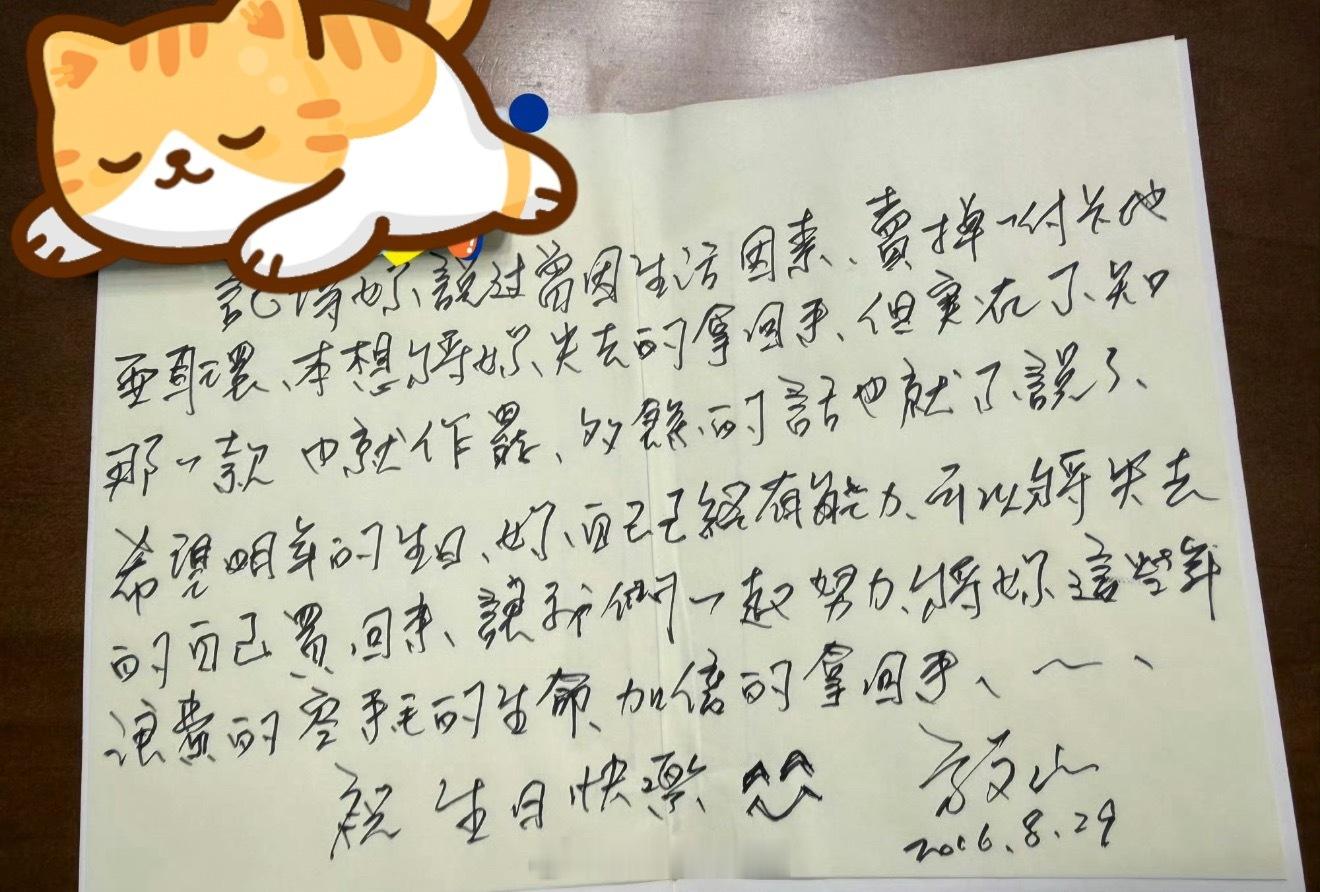 記得妳說过曾因生活因素、賣掉一付卡地
亞耳環、本想將妳失去的拿回来、但实在不知
那一款 也就作罷、多餘的話也就不說了、
希望明年的生日、妳自己已經有能力、可以將失去
的自己買回来、讓我們一起努力、將妳這些年
浪費的 的生命、加倍的拿回来、
祝 生日快樂
2016.8.29